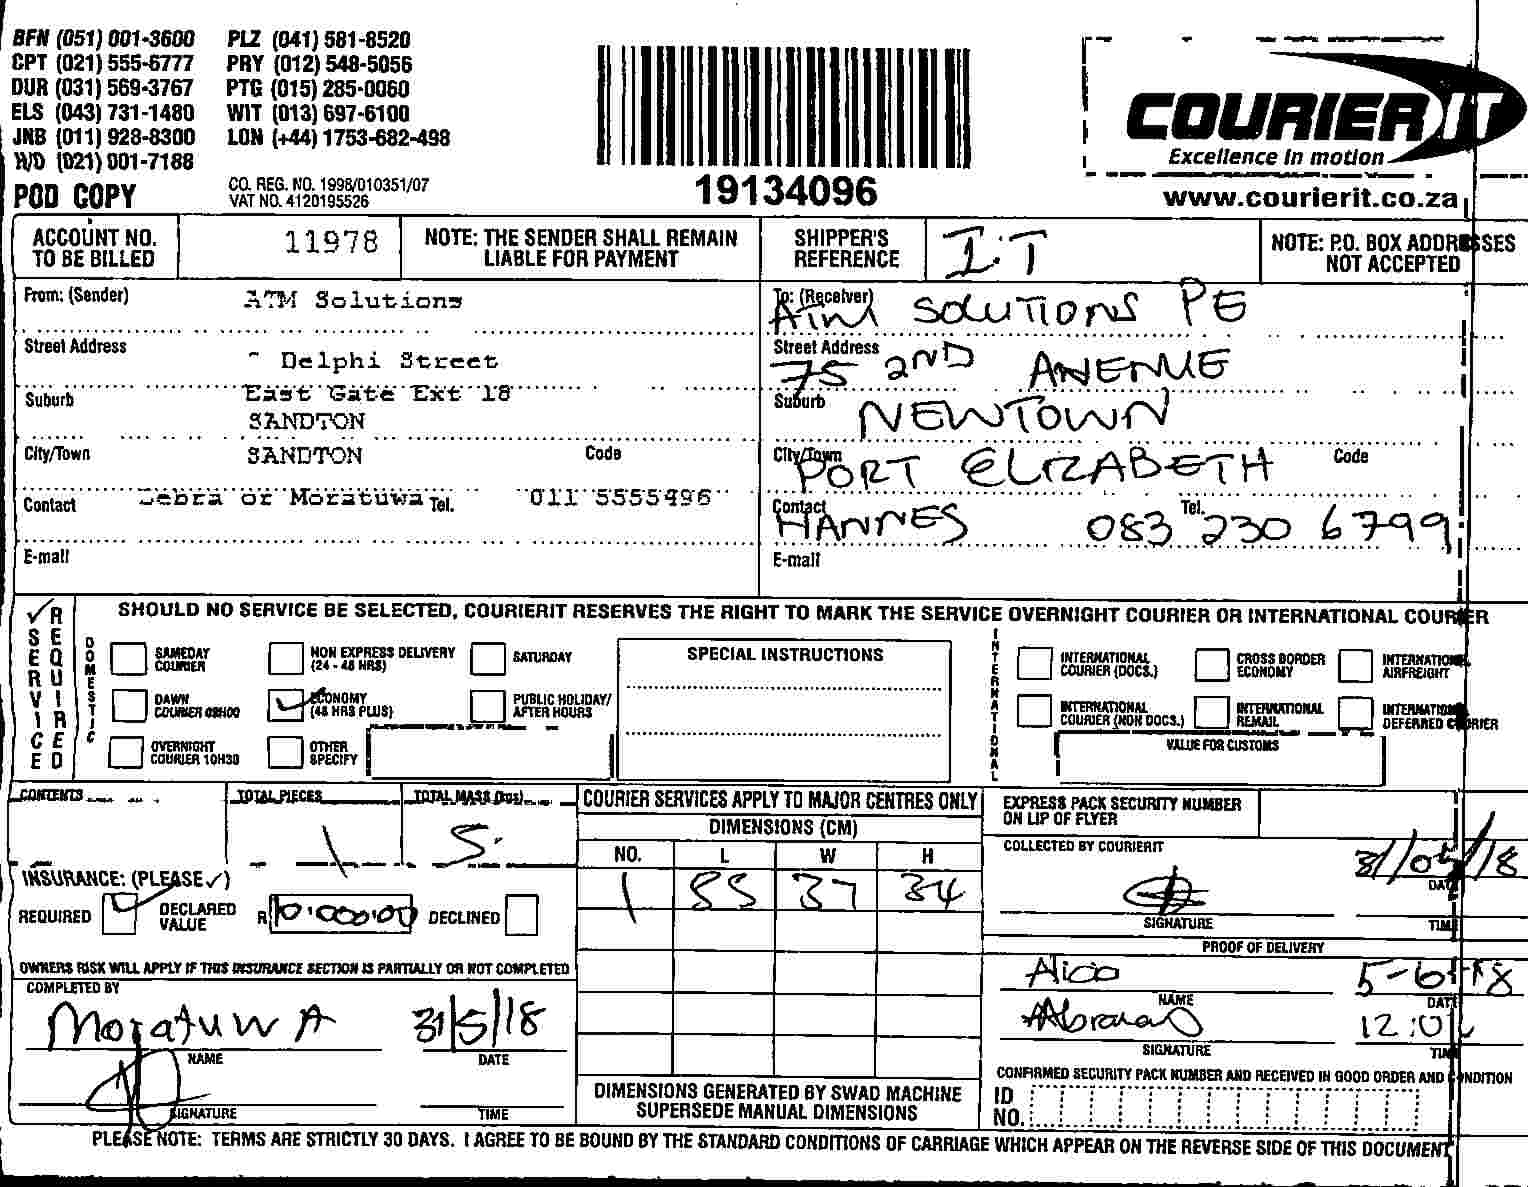 BFN (051) 001-3600 PLZ (041) 581-8520
CPT (021) 555-6777 PRY (012) 548-5056
DUR (031) 569-3767 PTG (015) 285-0060
ELS (043) 731-1480 WIT (013) 697-6100
JNB (011) 928-8300 LON (+44) 1753-682-498
W/D (021) 001-7188
POD COPY
CO. REG. NO. 1998/010351/07
VAT NO. 4120195526
19134096
COURIER IT
Excellence in motion
www.courierit.co.za
ACCOUNT NO. TO BE BILLED 11978
NOTE: THE SENDER SHALL REMAIN LIABLE FOR PAYMENT
SHIPPER'S REFERENCE I.T
NOTE: P.O. BOX ADDRESSES NOT ACCEPTED
From: (Sender) ATM Solutions
Street Address Delphi Street
Suburb East Gate Ext 18
SANDTON
City/Town SANDTON Code
Contact Debra or Moratuwa Tel. 011 5555496
E-mail
To: (Receiver) ATM SOLUTIONS PE
Street Address 75 2ND AVENUE
Suburb NEWTOWN
City/Town PORT ELIZABETH Code
Contact HANNES Tel. 083 230 6799
E-mail
SERVICE REQUIRED
SHOULD NO SERVICE BE SELECTED, COURIERIT RESERVES THE RIGHT TO MARK THE SERVICE OVERNIGHT COURIER OR INTERNATIONAL COURIER
DOMESTIC
SAMEDAY COURIER
NON EXPRESS DELIVERY (24 - 48 HRS)
SATURDAY
DAWN COURIER 08H00
ECONOMY (48 HRS PLUS)
PUBLIC HOLIDAY/ AFTER HOURS
OVERNIGHT COURIER 10H30
OTHER SPECIFY
SPECIAL INSTRUCTIONS
INTERNATIONAL
INTERNATIONAL COURIER (DOCS.)
CROSS BORDER ECONOMY
INTERNATIONAL AIRFREIGHT
INTERNATIONAL COURIER (NON DOCS.)
INTERNATIONAL REMAIL
INTERNATIONAL DEFERRED COURIER
VALUE FOR CUSTOMS
CONTENTS
TOTAL PIECES 1
TOTAL MASS (kgs) 5
INSURANCE: (PLEASE ✓)
REQUIRED ✓ DECLARED VALUE R 10.000.00 DECLINED
OWNERS RISK WILL APPLY IF THIS INSURANCE SECTION IS PARTIALLY OR NOT COMPLETED
COMPLETED BY
MoratuwA 31/5/18
NAME DATE
SIGNATURE TIME
COURIER SERVICES APPLY TO MAJOR CENTRES ONLY
DIMENSIONS (CM)
NO. L W H
1 55 37 34
DIMENSIONS GENERATED BY SWAD MACHINE SUPERSEDE MANUAL DIMENSIONS
EXPRESS PACK SECURITY NUMBER ON LIP OF FLYER
COLLECTED BY COURIERIT
31/05/18
DATE
SIGNATURE TIME
PROOF OF DELIVERY
5-6-18
NAME DATE
SIGNATURE TIME
CONFIRMED SECURITY PACK NUMBER AND RECEIVED IN GOOD ORDER AND CONDITION
ID NO.
PLEASE NOTE: TERMS ARE STRICTLY 30 DAYS. I AGREE TO BE BOUND BY THE STANDARD CONDITIONS OF CARRIAGE WHICH APPEAR ON THE REVERSE SIDE OF THIS DOCUMENT